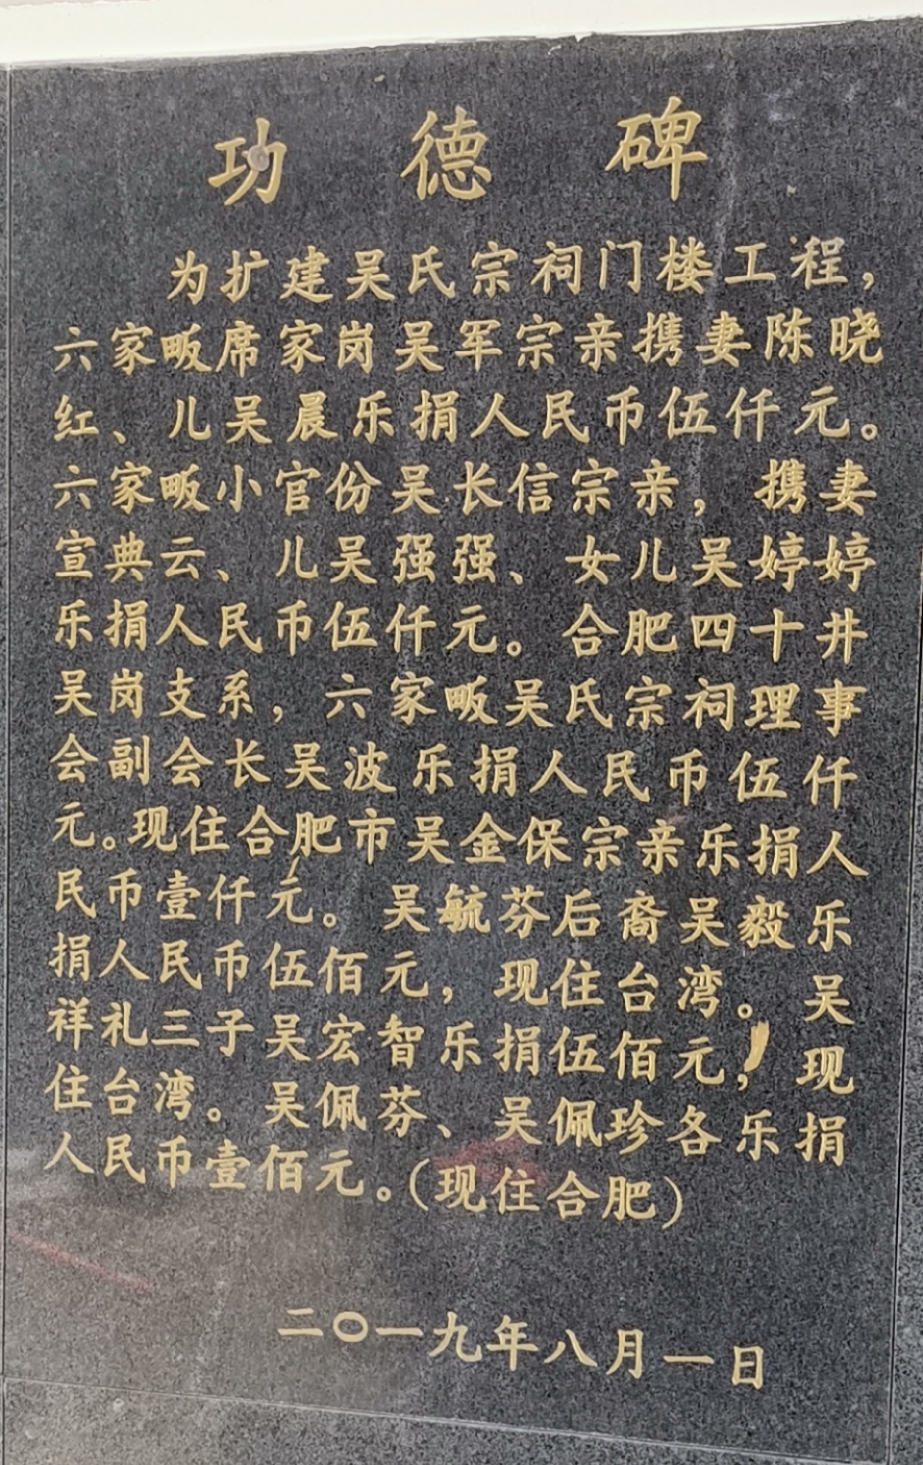 功德碑
为扩建吴氏宗祠门楼工程，
六家畈席家岗吴军宗亲携妻陈晓
红、儿吴晨乐捐人民币伍仟元。
六家畈小官份吴长信宗亲，携妻
宣典云、儿吴强强、女儿吴婷婷
乐捐人民币伍仟元。合肥四十井
吴岗支系，六家畈吴氏宗祠理事
会副会长吴波乐捐人民币伍仟
元。现住合肥市吴金保宗亲乐捐人
民币壹仟元。吴毓芬后裔吴毅乐
捐人民币伍佰元，现住台湾。吴
祥礼三子吴宏智乐捐伍佰元，现
住台湾。吴佩芬、吴佩珍各乐捐
人民币壹佰元。(现住合肥)
二〇一九年八月一日